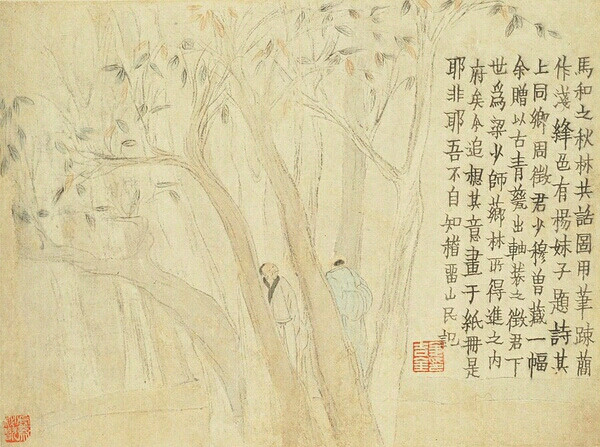 馬和之秋林共話圖用筆疎簡
作淺絳色有楊妹子題詩其
上同鄉周徵君少穆曾藏一幅
余贈以古青甆出軸裝之徵君下
世爲梁少師薌林所得進之內
府矣今追想其意畫于紙冊是
耶非耶吾不自知稽畱山民記